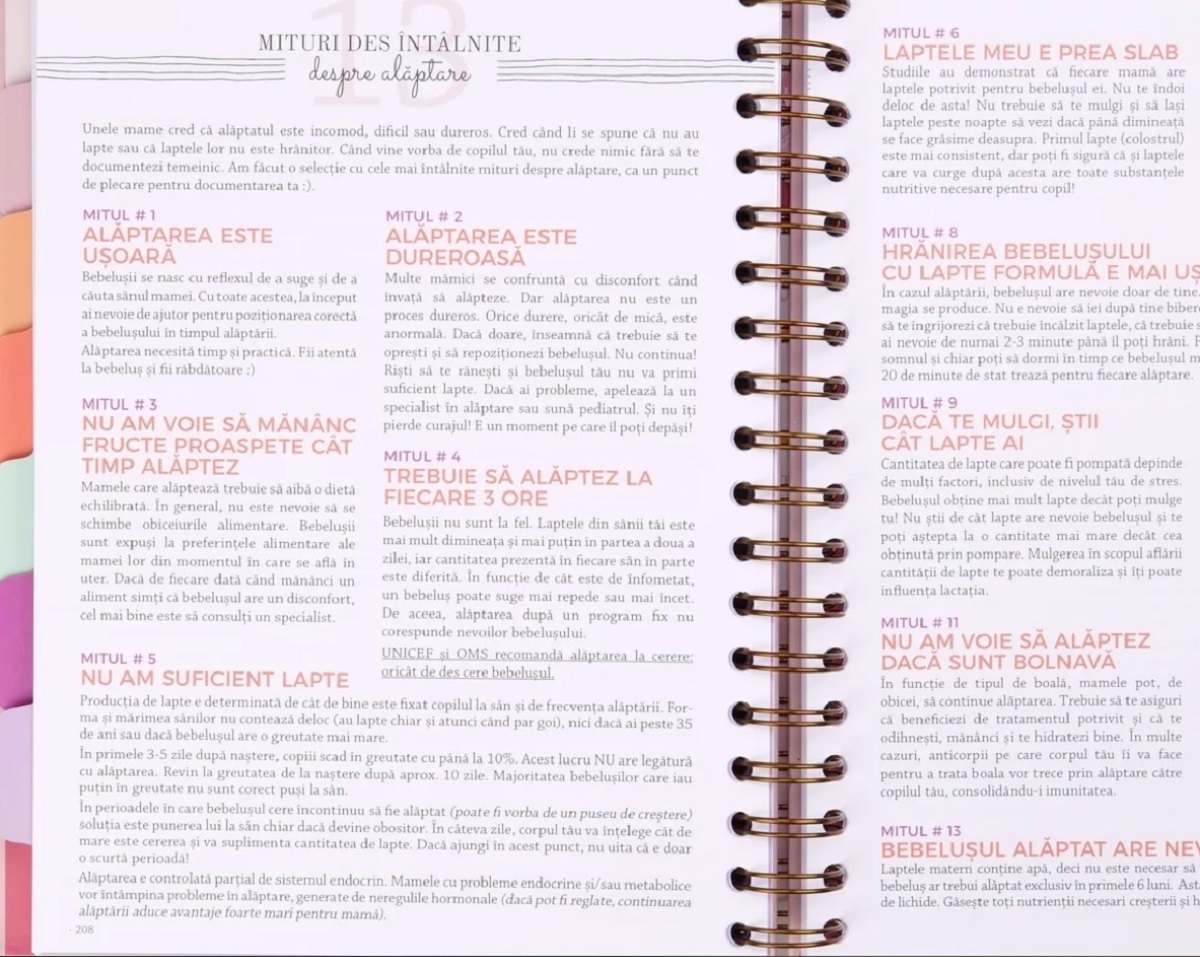 13
MITURI DES ÎNTÂLNITE
despre alăptare
Unele mame cred că alăptatul este incomod, dificil sau dureros. Cred când li se spune că nu au
lapte sau că laptele lor nu este hrănitor. Când vine vorba de copilul tău, nu crede nimic fără să te
documentezi temeinic. Am făcut o selecție cu cele mai întâlnite mituri despre alăptare, ca un punct
de plecare pentru documentarea ta :).
MITUL # 1
ALĂPTAREA ESTE
UȘOARĂ
Bebelușii se nasc cu reflexul de a suge și de a
căuta sânul mamei. Cu toate acestea, la început
ai nevoie de ajutor pentru poziționarea corectă
a bebelușului în timpul alăptării.
Alăptarea necesită timp și practică. Fii atentă
la bebeluș și fii răbdătoare :)
MITUL # 2
ALĂPTAREA ESTE
DUREROASĂ
Multe mămici se confruntă cu disconfort când
învață să alăpteze. Dar alăptarea nu este un
proces dureros. Orice durere, oricât de mică, este
anormală. Dacă doare, înseamnă că trebuie să te
oprești și să repoziționezi bebelușul. Nu continua!
Riști să te rănești și bebelușul tău nu va primi
suficient lapte. Dacă ai probleme, apelează la un
specialist în alăptare sau sună pediatrul. Și nu îți
pierde curajul! E un moment pe care îl poți depăși!
MITUL # 3
NU AM VOIE SĂ MĂNÂNC
FRUCTE PROASPETE CÂT
TIMP ALĂPTEZ
Mamele care alăptează trebuie să aibă o dietă
echilibrată. În general, nu este nevoie să se
schimbe obiceiurile alimentare. Bebelușii
sunt expuși la preferințele alimentare ale
mamei lor din momentul în care se află în
uter. Dacă de fiecare dată când mănânci un
aliment simți că bebelușul are un disconfort,
cel mai bine este să consulți un specialist.
MITUL # 4
TREBUIE SĂ ALĂPTEZ LA
FIECARE 3 ORE
Bebelușii nu sunt la fel. Laptele din sânii tăi este
mai mult dimineața și mai puțin în partea a doua a
zilei, iar cantitatea prezentă în fiecare sân în parte
este diferită. În funcție de cât este de înfometat,
un bebeluș poate suge mai repede sau mai încet.
De aceea, alăptarea după un program fix nu
corespunde nevoilor bebelușului.
UNICEF și OMS recomandă alăptarea la cerere:
oricât de des cere bebelușul.
MITUL # 5
NU AM SUFICIENT LAPTE
Producția de lapte e determinată de cât de bine este fixat copilul la sân și de frecvența alăptării. For-
ma și mărimea sânilor nu contează deloc (au lapte chiar și atunci când par goi), nici dacă ai peste 35
de ani sau dacă bebelușul are o greutate mai mare.
În primele 3-5 zile după naștere, copiii scad în greutate cu până la 10%. Acest lucru NU are legătură
cu alăptarea. Revin la greutatea de la naștere după aprox. 10 zile. Majoritatea bebelușilor care iau
puțin în greutate nu sunt corect puși la sân.
În perioadele în care bebelușul cere încontinuu să fie alăptat (poate fi vorba de un puseu de creștere)
soluția este punerea lui la sân chiar dacă devine obositor. În câteva zile, corpul tău va înțelege cât de
mare este cererea și va suplimenta cantitatea de lapte. Dacă ajungi în acest punct, nu uita că e doar
o scurtă perioadă!
Alăptarea e controlată parțial de sistemul endocrin. Mamele cu probleme endocrine și/sau metabolice
vor întâmpina probleme în alăptare, generate de neregulile hormonale (dacă pot fi reglate, continuarea
alăptării aduce avantaje foarte mari pentru mamă).
· 208
MITUL # 6
LAPTELE MEU E PREA SLAB
Studiile au demonstrat că fiecare mamă are
laptele potrivit pentru bebelușul ei. Nu te îndoi
deloc de asta! Nu trebuie să te mulgi și să lași
laptele peste noapte să vezi dacă până dimineață
se face grăsime deasupra. Primul lapte (colostrul)
este mai consistent, dar poți fi sigură că și laptele
care va curge după acesta are toate substanțele
nutritive necesare pentru copil!
MITUL # 8
HRĂNIREA BEBELUȘULUI
CU LAPTE FORMULĂ E MAI UȘ
În cazul alăptării, bebelușul are nevoie doar de tine.
magia se produce. Nu e nevoie să iei după tine biber
să te îngrijorezi că trebuie încălzit laptele, că trebuie s
ai nevoie de numai 2-3 minute până îl poți hrăni. F
somnul și chiar poți să dormi în timp ce bebelușul m
20 de minute de stat trează pentru fiecare alăptare.
MITUL # 9
DACĂ TE MULGI, ȘTII
CÂT LAPTE AI
Cantitatea de lapte care poate fi pompată depinde
de mulți factori, inclusiv de nivelul tău de stres.
Bebelușul obține mai mult lapte decât poți mulge
tu! Nu știi de cât lapte are nevoie bebelușul și te
poți aștepta la o cantitate mai mare decât cea
obținută prin pompare. Mulgerea în scopul aflării
cantității de lapte te poate demoraliza și îți poate
influența lactația.
MITUL # 11
NU AM VOIE SĂ ALĂPTEZ
DACĂ SUNT BOLNAVĂ
În funcție de tipul de boală, mamele pot, de
obicei, să continue alăptarea. Trebuie să te asiguri
că beneficiezi de tratamentul potrivit și că te
odihnești, mănânci și te hidratezi bine. În multe
cazuri, anticorpii pe care corpul tău îi va face
pentru a trata boala vor trece prin alăptare către
copilul tău, consolidându-i imunitatea.
MITUL # 13
BEBELUȘUL ALĂPTAT ARE NEV
Laptele matern conține apă, deci nu este necesar să
bebeluș ar trebui alăptat exclusiv în primele 6 luni. Ast
de lichide. Găsește toți nutrienții necesari creșterii și h